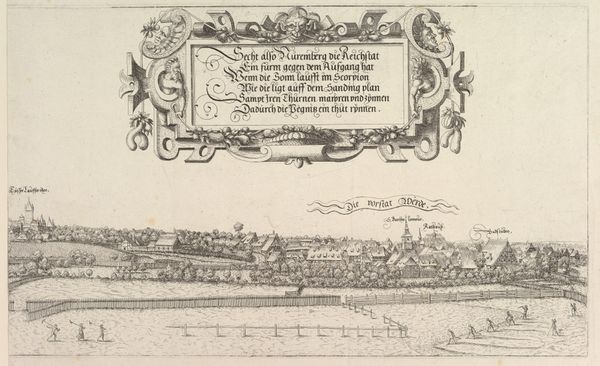 Secht also Nüremberg die Reichstat
Ein fürm gegen dem Aufgang hat
Wenn die Sonn laufft im Scorpion
Wie die ligt auff dem Sanding plan
Sampt jren Thürnen mauren vnd zÿnnen
Dadurch die Pegnitz ein thüt rÿnnen.
Die vorstat Wërde.